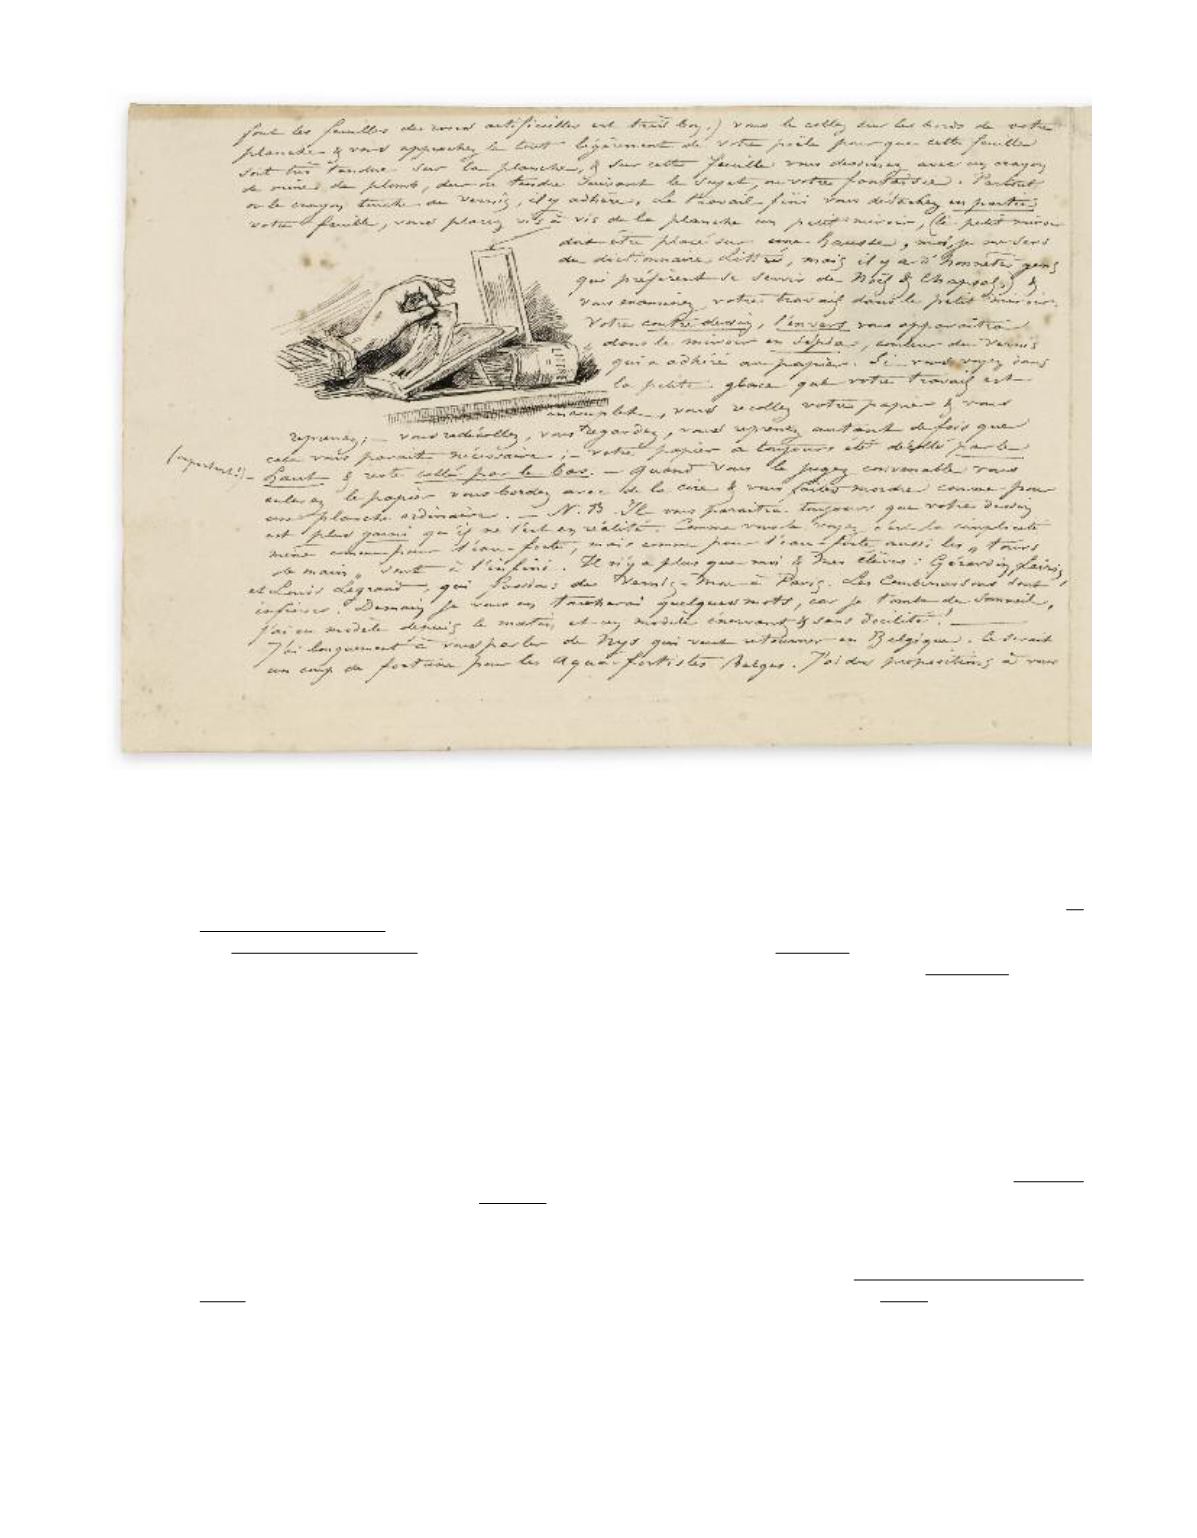 font les feuilles de roses artificielles est très bon.) vous le collez sur les bords de votre
planche & vous approchez le tout légèrement de votre poële pour que cette feuille
soit très tendue sur la planche, & sur cette feuille vous dessinez avec un crayon
de mine de plomb, dur ou tendre suivant le sujet, ou votre fantaisie. Partout
où le crayon touche du vernis, il y adhère. Le travail fini vous détachez en partie
votre feuille, vous placez vis à vis de la planche un petit miroir, (le petit miroir
doit être placé sur une hausse, moi, je me sers
du dictionnaire Littré, mais il y a d'honnêtes gens
qui préfèrent se servir de Noël & Chapsal,) &
vous examinez votre travail dans le petit miroir.
Votre contre-dessin, l'envers vous apparaîtra
dans le miroir en sépia, couleur du vernis
qui a adhéré au papier. Si vous voyez dans
la petite glace que votre travail est
incomplet, vous recollez votre papier & vous
reprenez; – vous redécollez, vous regardez, vous reprenez autant de fois que
cela vous parait nécessaire; – votre papier a toujours été décollé par le
(important!) – haut & reste collé par le bas. – Quand vous le jugez convenable vous
enlevez le papier vous bordez avec de la cire & vous faites mordre comme pour
une planche ordinaire. – N.B. Il vous paraitra toujours que votre dessin
est plus garni qu'il ne l'est en réalité. Comme vous le voyez c'est la simplicité
même comme pour l'eau-forte, mais comme pour l'eau-forte aussi les „tours
de main" sont à l'infini. Il n'y a plus que moi & mes élèves:
et Louis Legrand, qui fassions du Vernis-Mou à Paris. Les Combinaisons sont
infinies! Demain je vous en toucherai quelques mots, car je tombe de sommeil,
j'ai eu modèle depuis le matin, et un modèle énervant & sans docilité! —
J'ai longuement à vous parler de Nys qui veut retourner en Belgique. Ce serait
un coup de fortune pour les Aqua-fortistes Belges. J'ai des propositions à vous